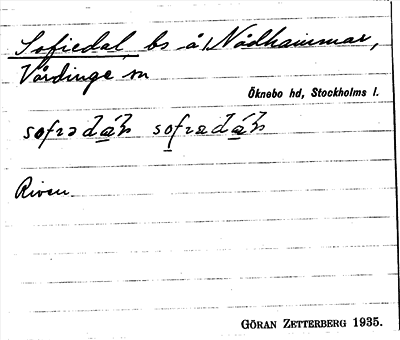 Sofiedal bs å Nådhammar,
Vårdinge sn
Öknebo hd, Stockholms l.
Riven.
GÖRAN ZETTERBERG 1935.